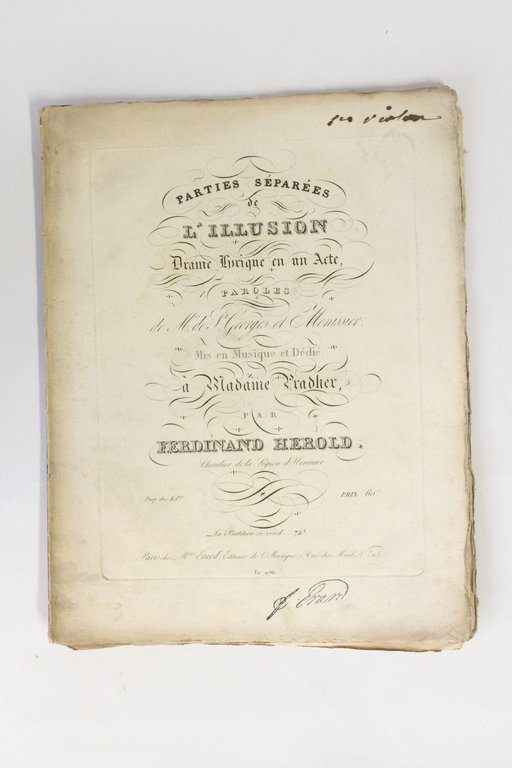 1er violon
PARTIES SÉPARÉES
de
L'ILLUSION
Drame Lyrique en un Acte,
PAROLES
de Mr. de St. Georges et Menissier.
Mis en Musique et Dédié
à Madame Pradher,
PAR
FERDINAND HEROLD.
Chevalier de la Légion d'Honneur
Prop. des Edrs.
PRIX 60f
La Partition se vend 72f.
Paris, chez Mlles Erard, Editeurs de Musique, Rue du Mail, No. 13.
Er. 976.